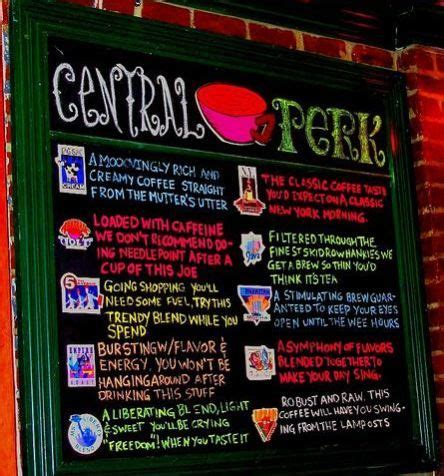 CENTRAL PERK
A MOOVINGLY RICH AND
CREAMY COFFEE STRAIGHT
FROM THE MUTTER'S UTTER
LOADED WITH CAFFEINE
WE DON'T RECOMMEND DO-
ING NEEDLEPOINT AFTER A
CUP OF THIS JOE
GOING SHOPPING YOU'LL
NEED SOME FUEL, TRY THIS
TRENDY BLEND WHILE YOU
SPEND
BURSTING W/FLAVOR &
ENERGY, YOU WON'T BE
HANGING AROUND AFTER
DRINKING THIS STUFF
A LIBERATING BLEND, LIGHT
& SWEET YOU'LL BE CRYING
FREEDOM"! WHEN YOU TASTE IT
THE CLASSIC COFFEE TASTE
YOU'D EXPECT ON A CLASSIC
NEW YORK MORNING.
FILTERED THROUGH THE
FINEST SKIDROW HANKIES WE
GET A BREW SO THIN YOU'D
THINK IT'S TEA
A STIMULATING BREW GUAR-
ANTEED TO KEEP YOUR EYES
OPEN UNTIL THE WEE HOURS
A SYMPHONY OF FLAVORS
BLENDED TOGETHER TO
MAKE YOUR DAY SING.
ROBUST AND RAW. THIS
COFFEE WILL HAVE YOU SWING-
ING FROM THE LAMPOSTS